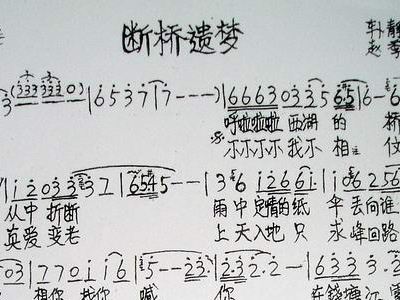 断桥遗梦
卦静
赵季
3 333 333 0) | 6 5 3 7 | 7 - - - ) | 6 6 6 3 0 3 3 5 6 5 | 6 - 6
呼啦啦啦 西湖 的 桥
不不不不 我不 相 仪
1 2 0 3 3 3 2 1 | 6 5 4 5 - - | 3 6 1 2 6 6 1 | 1 0 6 2 5 6
从中 折断 雨中 定情的纸 伞 丢向谁
真爱 变老 上天入地 只 求 峰回路
03 | 7 7 0 1 1 6 | 5 - - 2 3 | 2 3 2 2 - | 6 3 3 3 2
想你 找你 喊 你 在钱塘江